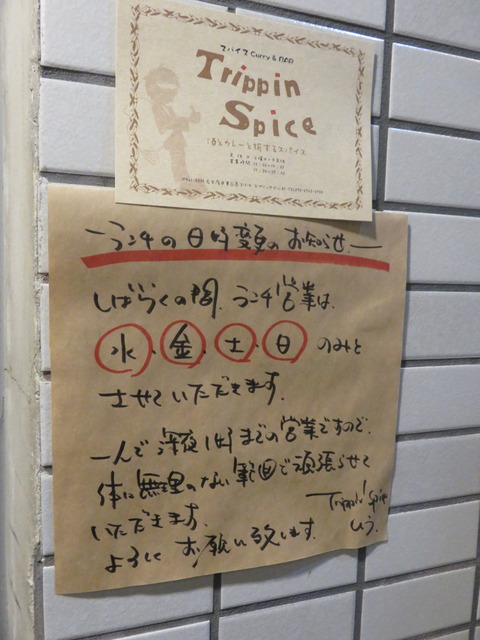 スパイス Curry & BAR
Trippin
Spice
酒とカレーと旅するスパイス
ランチの日時変更のお知らせ
しばらくの間、ランチ営業は、
水・金・土・日 のみと
させていただきます。
一人で深夜1時までの営業ですので、
体に無理のない範囲で頑張らせて
いただきます。
よろしくお願い致します。
Trippin' Spice